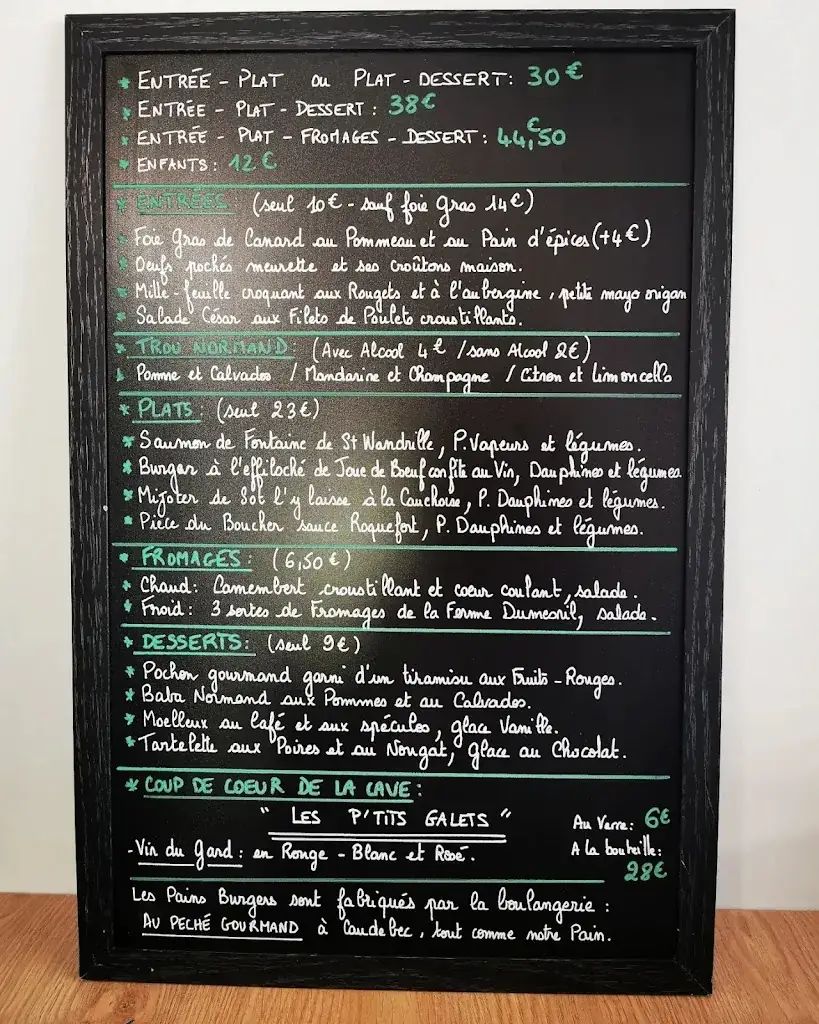 * ENTRÉE - PLAT OU PLAT - DESSERT : 30 €
* ENTRÉE - PLAT - DESSERT : 38 €
* ENTRÉE - PLAT - FROMAGES - DESSERT : 44,50 €
* ENFANTS : 12 €
* ENTRÉES (seul 10 € - sauf foie gras 14 €)
* Foie Gras de Canard au Pommeau et au Pain d'épices (+4 €)
* Oeufs pochés meurette et ses croûtons maison.
* Mille-feuille croquant aux Rougets et à l'aubergine, petite mayo origan
* Salade César aux Filets de Poulets croustillants.
* TROU NORMAND : (Avec Alcool 4 € / sans Alcool 2 €)
* Pomme et Calvados / Mandarine et Champagne / Citron et limoncello
* PLATS : (seul 23 €)
* Saumon de Fontaine de St Wandrille, P. Vapeurs et légumes.
* Burger à l'effiloché de Joue de Boeuf confite au Vin, Dauphines et légumes
* Mijoter de Sot l'y laisse à la Cauchoise, P. Dauphines et légumes.
* Pièce du Boucher sauce Roquefort, P. Dauphines et légumes.
* FROMAGES : (6,50 €)
* Chaud : Camembert croustillant et coeur coulant, salade.
* Froid : 3 sortes de Fromages de la Ferme Dumesnil, salade.
* DESSERTS : (seul 9 €)
* Pochon gourmand garni d'un tiramisu aux Fruits-Rouges.
* Baba Normand aux Pommes et au Calvados.
* Moelleux au Café et aux spéculos, glace Vanille.
* Tartelette aux Poires et au Nougat, glace au Chocolat.
* COUP DE COEUR DE LA CAVE :
" LES P'TITS GALETS "
Au Verre : 6 €
- Vin du Gard : en Rouge - Blanc et Rosé.
A la bouteille :
28 €
Les Pains Burgers sont fabriqués par la boulangerie :
AU PECHÉ GOURMAND à Caudebec, tout comme notre Pain.